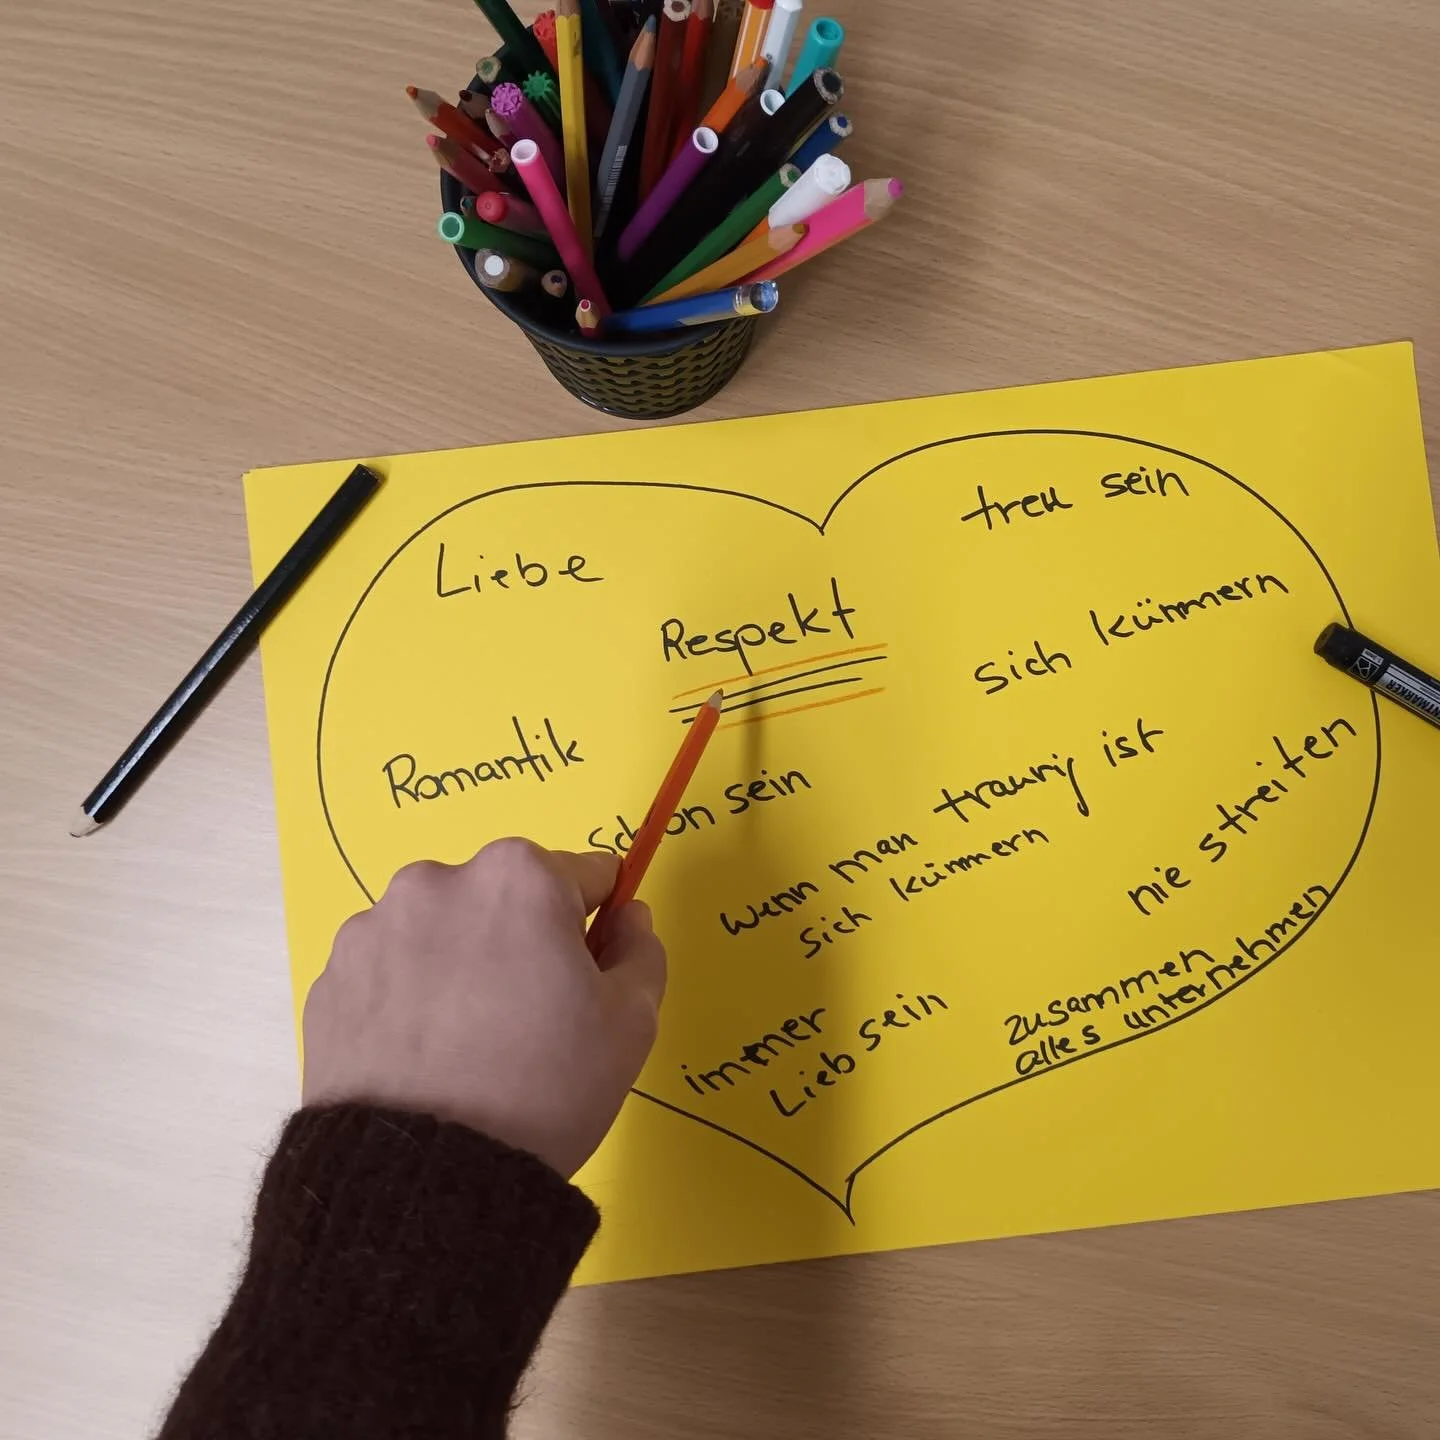 Liebe
Respekt
treu sein
sich kümmern
Romantik
schön sein
wenn man traurig ist
sich kümmern
nie streiten
immer
Lieb sein
zusammen
alles unternehmen